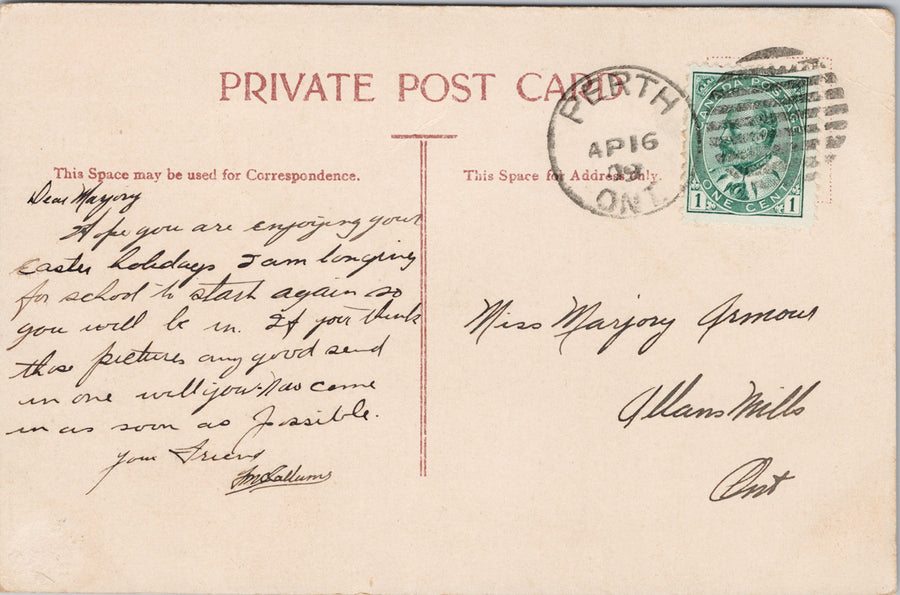 PRIVATE POST CARD
PERTH
AP 16
09
ONT
CANADA POSTAGE
1 ONE CENT 1
This Space may be used for Correspondence.
This Space for Address only.
Dear Marjory
Hope you are enjoying your
Easter holidays I am longing
for school to start again so
you will be in. If you think
those pictures any good send
me one will you. Now come
in as soon as possible.
your Friend
Miss Marjory Armour
Allans Mills
Ont